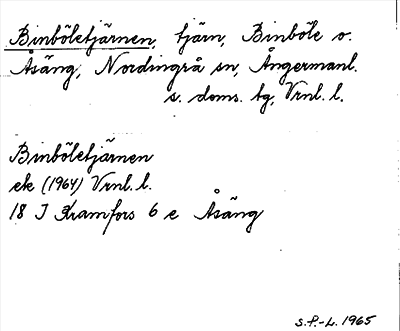 Binböletjärnen, tjärn, Binböle o.
Åsäng, Nordingrå sn, Ångermanl.
s. doms. tg, Vrnl. l.
Binböletjärnen
ek (1964) Vrnl. l.
18 I Kramfors 6 e Åsäng
S.P.-L. 1965